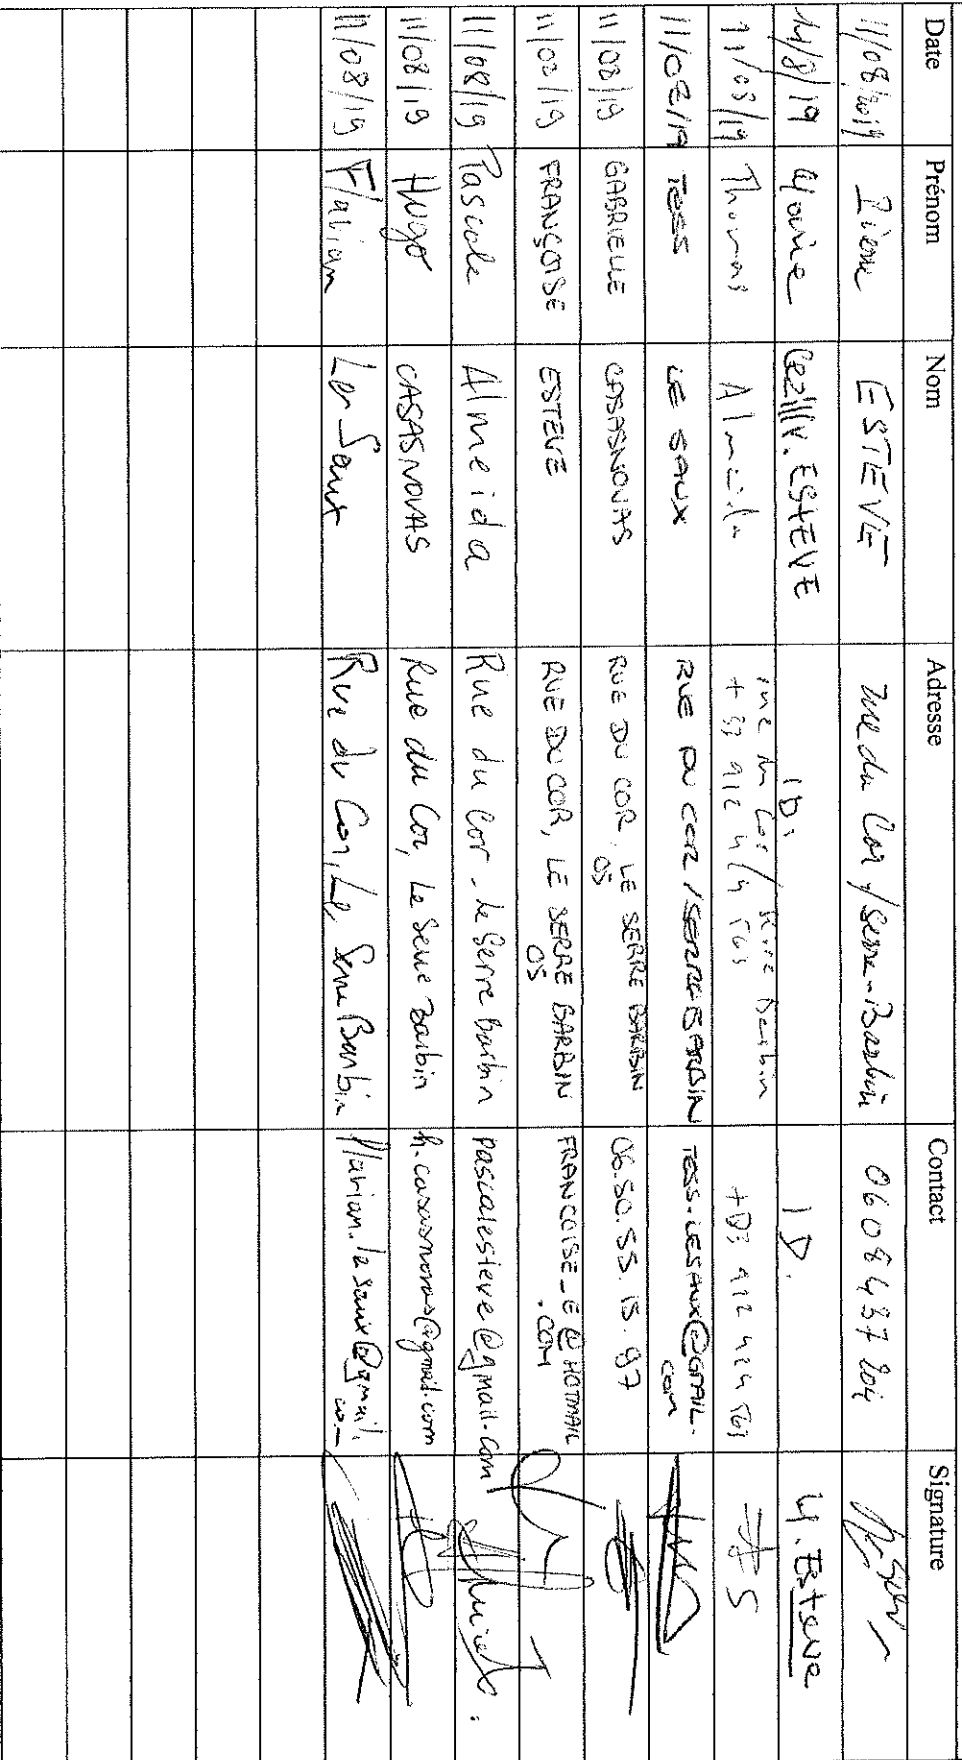 Date Prénom Nom Adresse Contact Signature
11/08/2019 Pierre ESTEVE rue du Cor / Serre-Barbin
14/8/19 ESTEVE ID. ID. Y. Esteve
11/08/19 Thomas Almeida rue du Cor / Serre Barbin
11/08/19 TESS LE SAUX RUE DU COR / SERRE BARBIN TESS.LESAUX@GMAIL.
com
11/08/19 GABRIELLE CASASNOVAS RUE DU COR, LE SERRE BARBIN 06.50.55.15.97
05
11/08/19 FRANÇOISE ESTEVE RUE DU COR, LE SERRE BARBIN FRANCOISE_E@HOTMAIL
05 .COM
11/08/19 Pascale Almeida Rue du Cor - le Serre barbin pascalesteve@gmail.com
11/08/19 Hugo CASASNOVAS Rue du Cor, Le Serre Barbin h.casasnovas@gmail.com
11/08/19 Flavian Le Saux Rue du Cor, Le Serre Barbin flavian.lesaux@gmail.